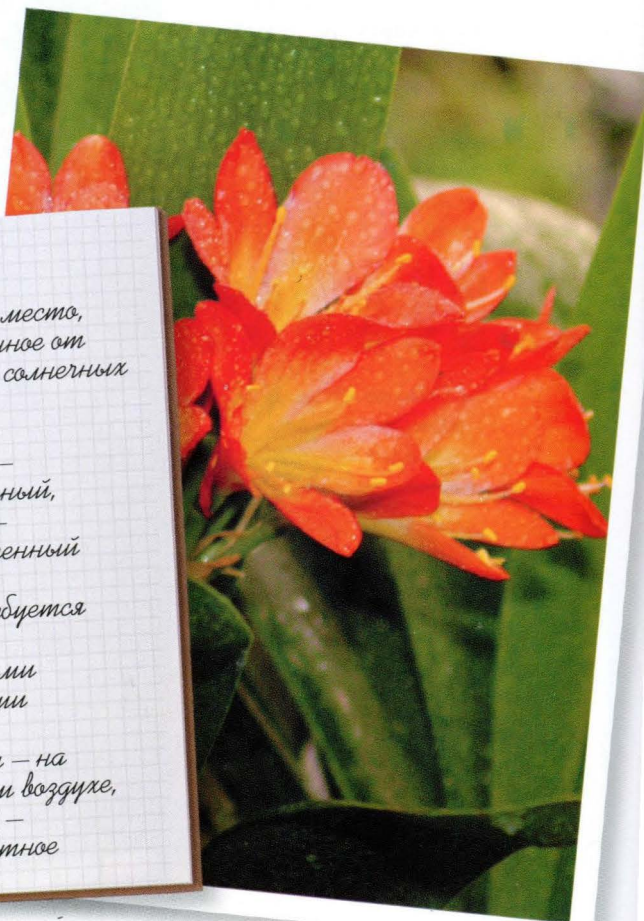 место,
ное от
солнечных
—
ный,
—
енный
буется
ми
ии
— на
воздухе,
—
тное